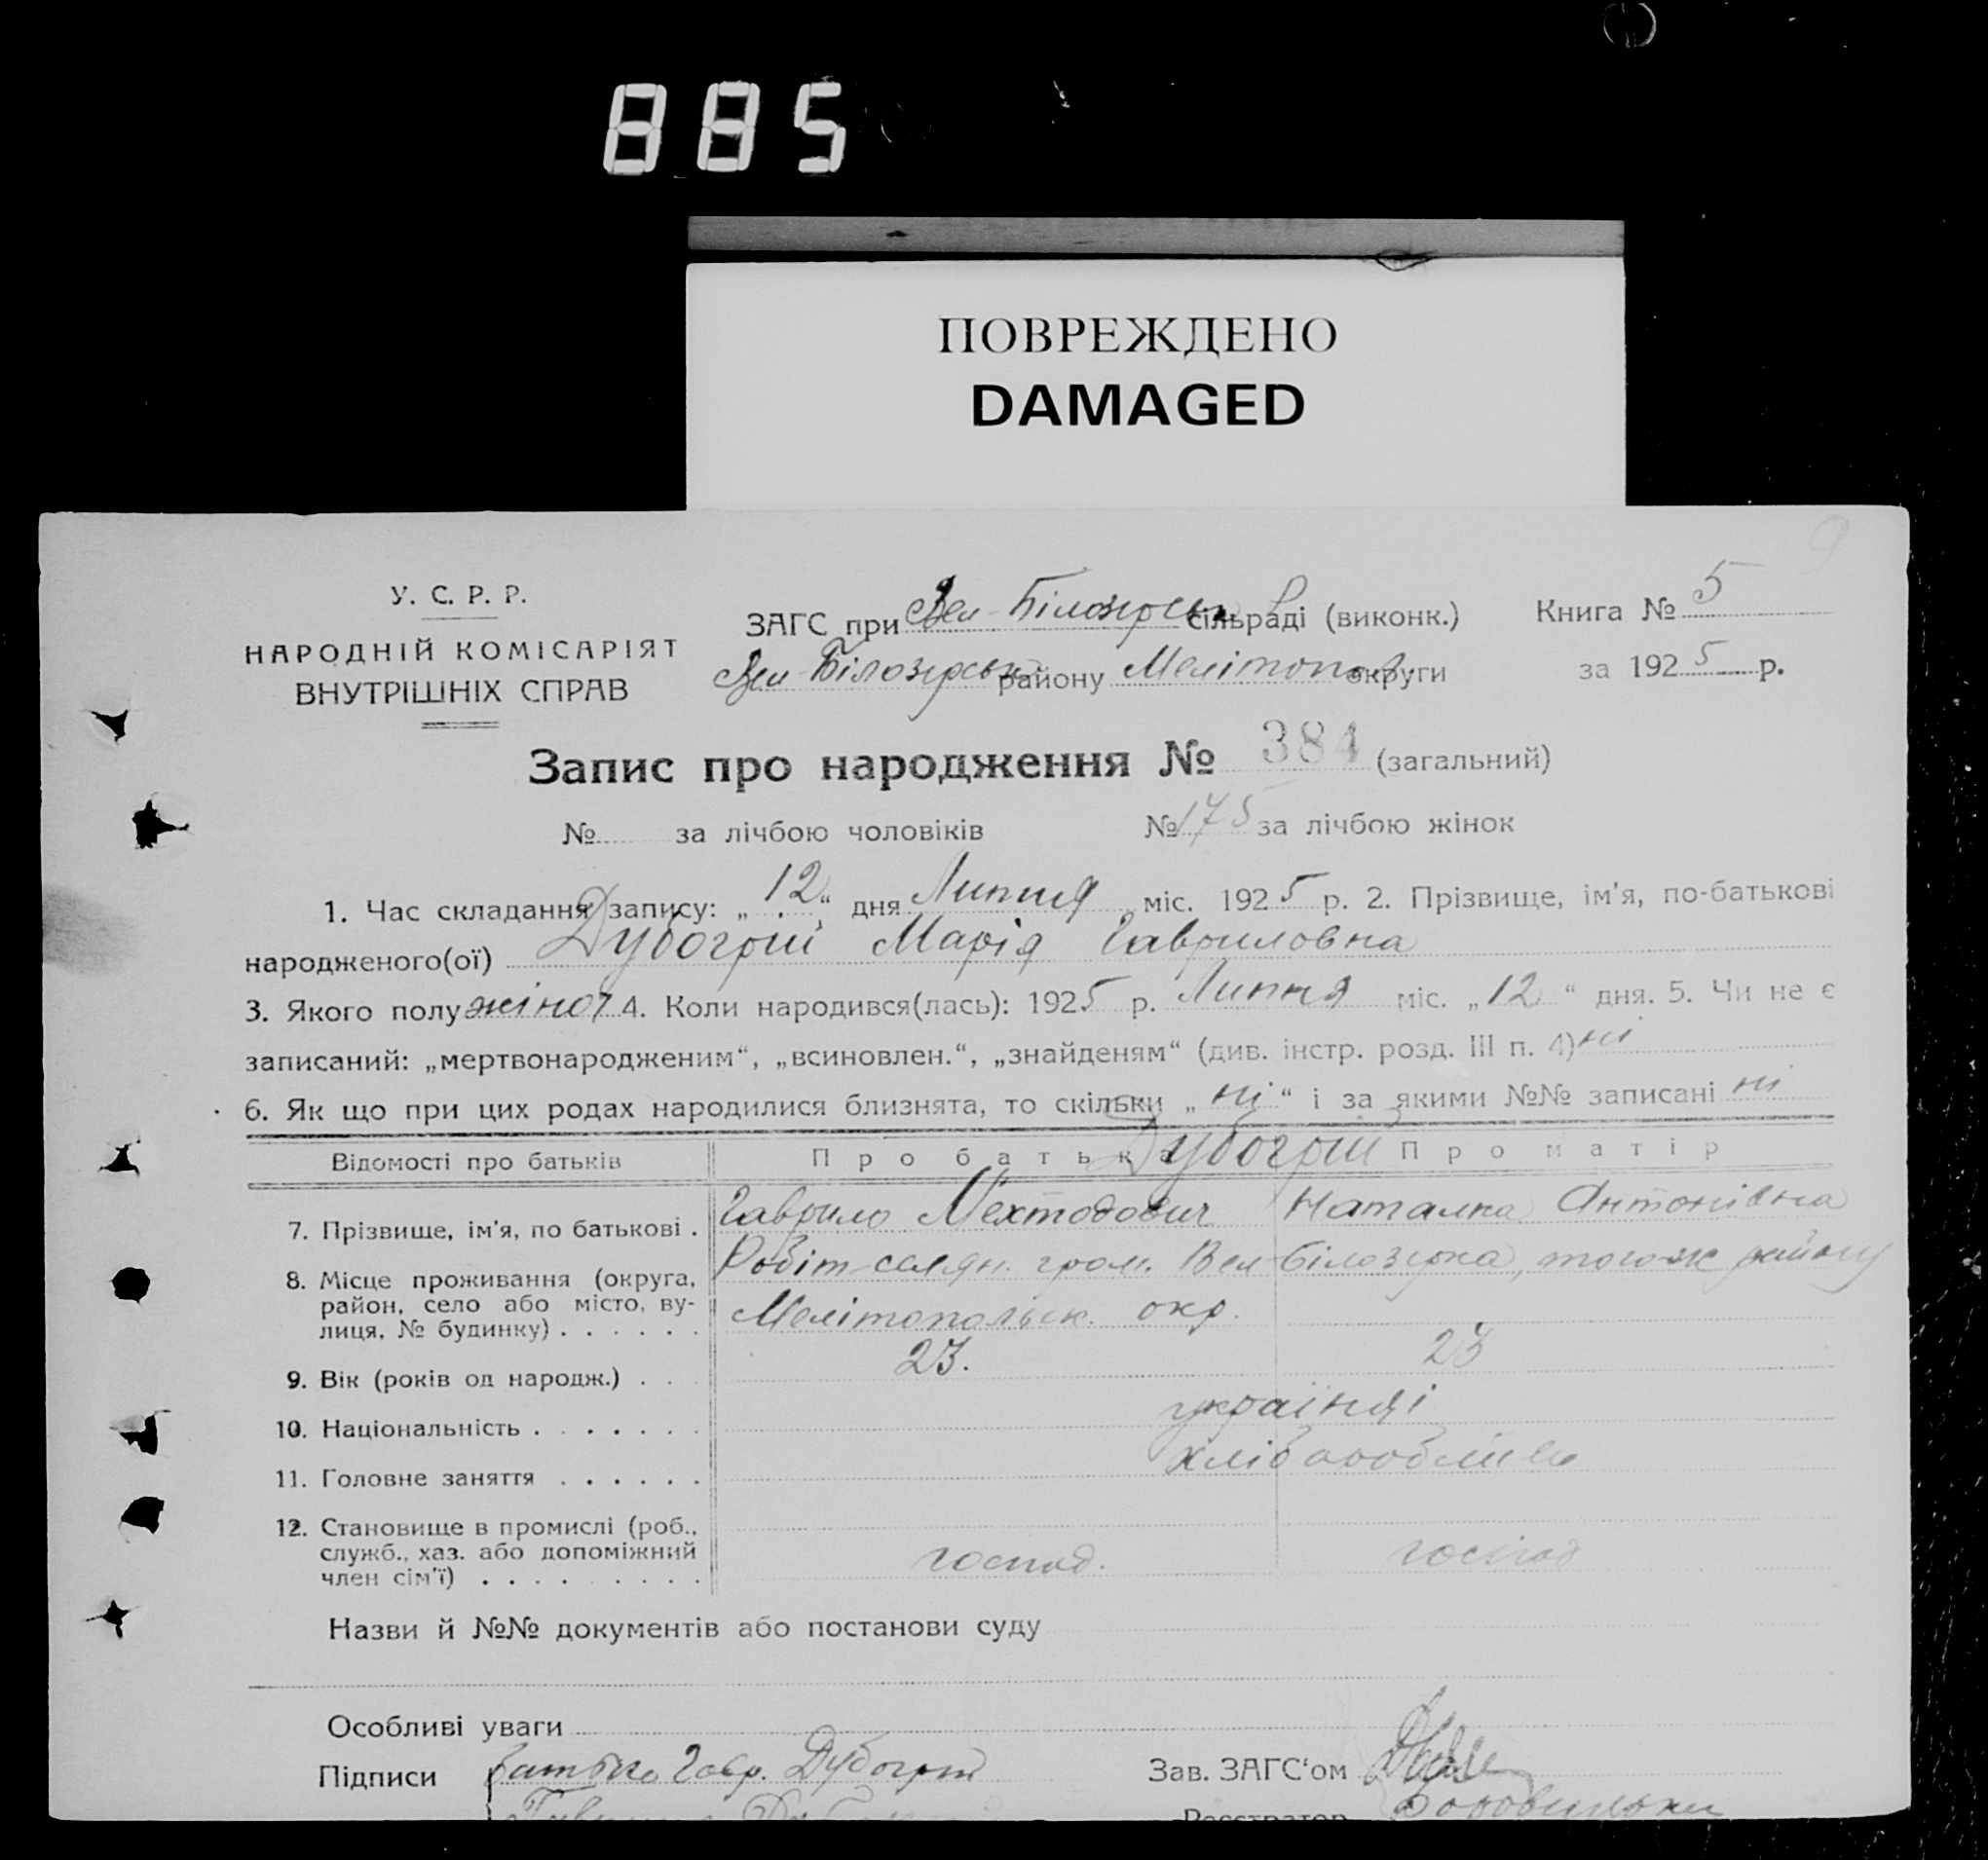 885
ПОВРЕЖДЕНО
DAMAGED
У. С. Р. Р.
НАРОДНІЙ КОМІСАРІЯТ
ВНУТРІШНІХ СПРАВ
ЗАГС при Вел-Білозірськ сільраді (виконк.) Книга № 5
Вел-Білозірськ району Мелітопол округи за 1925 р.
Запис про народження № 384 (загальний)
№ за лічбою чоловіків № 175 за лічбою жінок
1. Час складання запису: „12“ дня Липня міс. 1925 р. 2. Прізвище, ім'я, по-батькові
народженого(ої) Дубогрий Марія Гавриловна
3. Якого полу жіноч 4. Коли народився(лась): 1925 р. Липня міс. „12“ дня. 5. Чи не є
записаний: „мертвонародженим“, „всиновлен.“, „знайденям“ (див. інстр. розд. III п. 4) ні
6. Як що при цих родах народилися близнята, то скільки „ні“ і за якими №№ записані ні
Відомості про батьків Про батька Дубогрий Про матір
7. Прізвище, ім'я, по батькові . Гаврило Мехтодович Наталка Антонівна
8. Місце проживання (округа, Робіт-селян. гром. Вел-Білозірка, тогож району
район, село або місто, ву-
лиця, № будинку) . . . . . . Мелітопольск. окр.
9. Вік (років од народж.) . . . 23. 23
10. Національність . . . . . . . українці
11. Головне заняття . . . . . . хлібороблив
12. Становище в промислі (роб.,
служб., хаз. або допоміжний господ. господ
член сім'ї) . . . . . . . . .
Назви й №№ документів або постанови суду
Особливі уваги
Підписи батько Гавр. Дубогрий Зав. ЗАГС'ом
Реєстратор